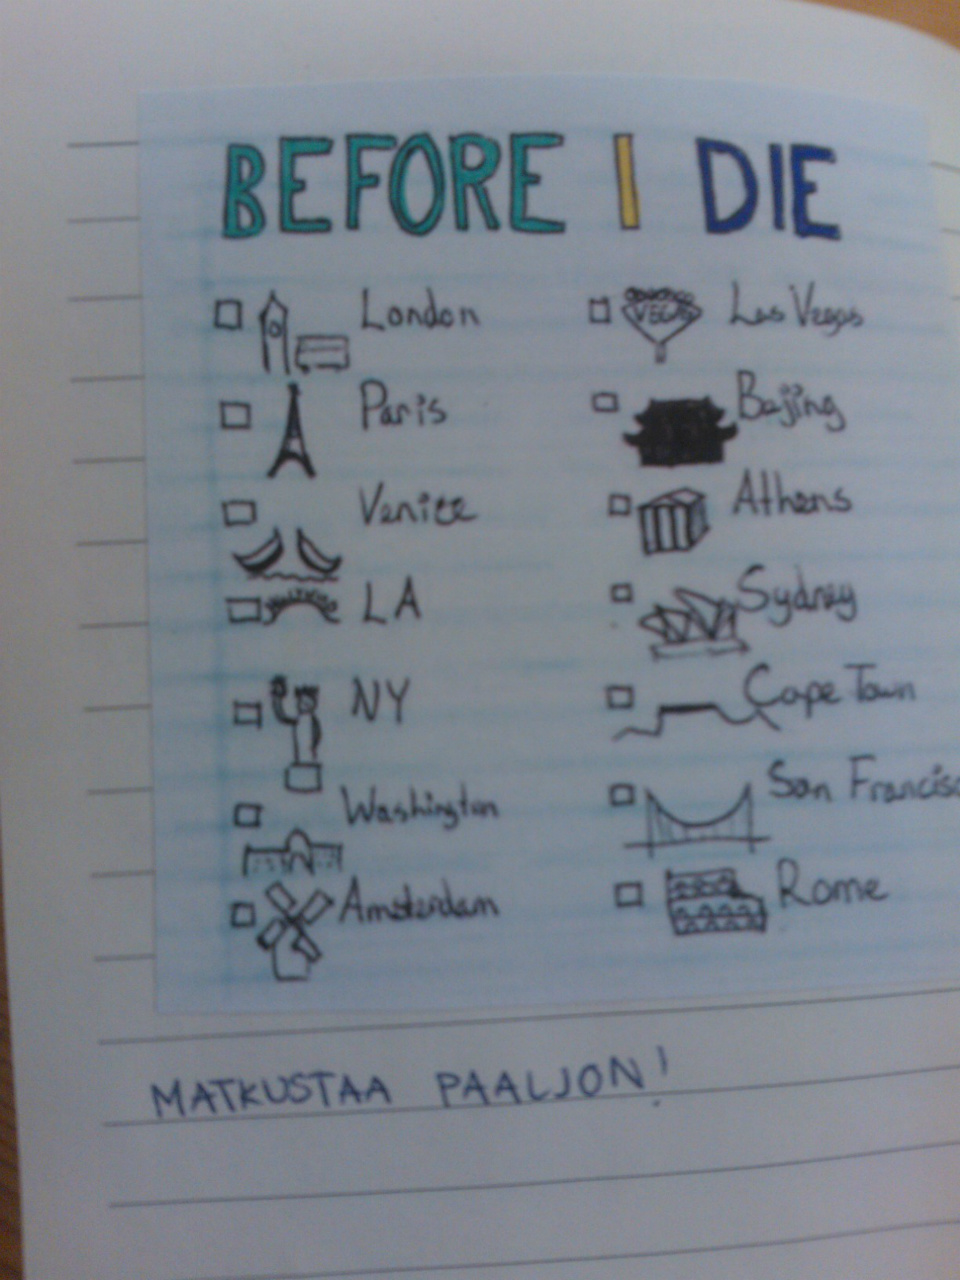 BEFORE I DIE
London
Paris
Venice
LA
NY
Washington
Amsterdam
VEGAS
Las Vegas
Bejing
Athens
Sydney
Cape Town
San Francisc
Rome
MATKUSTAA PAALJON!